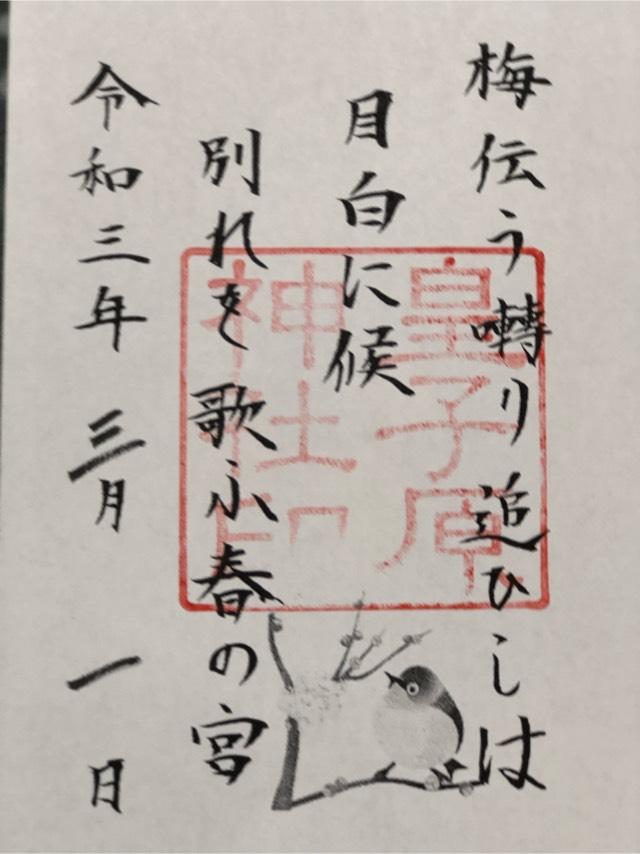 梅伝う囀り追ひしは
目白に候
別れを歌ふ春の宮
令和三年 三月 一日
皇子原
神社印